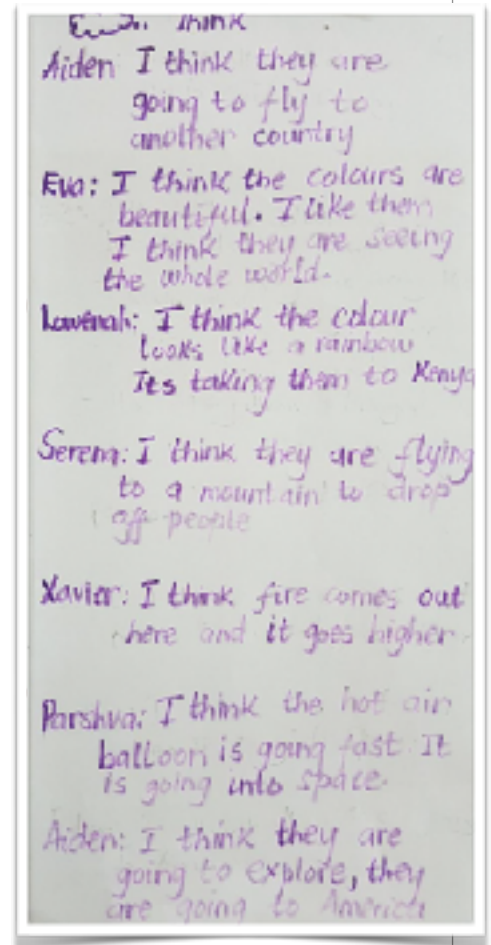 Think
Aiden I think they are
going to fly to
another country
Eva: I think the colours are
beautiful. I like them
I think they are seeing
the whole world.
I think the colour
looks like a rainbow
Its taking them to Kenya
Serena: I think they are flying
to a mountain to drop
off people
Xavier: I think fire comes out
here and it goes higher
Parshva: I think the hot air
balloon is going fast It
is going into space.
Aiden: I think they are
going to explore, they
are going to America